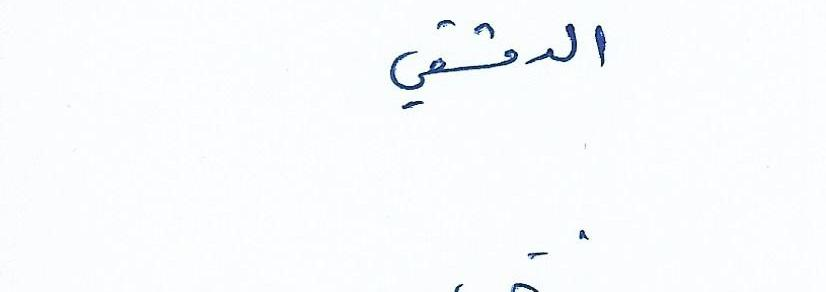 الدمشقي